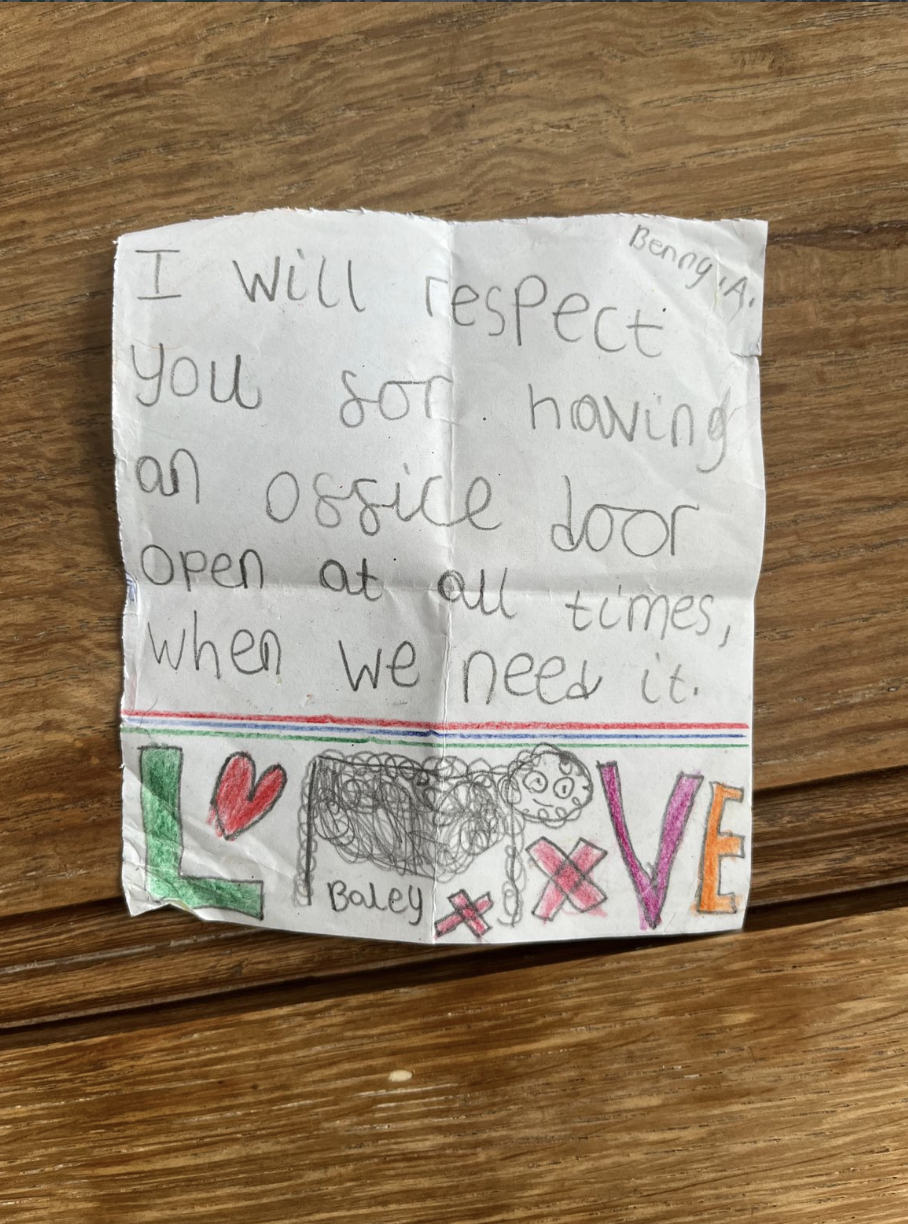 Benny.A.
I will respect
you for having
an office door
open at all times,
when we need it.
LOVE
Baley